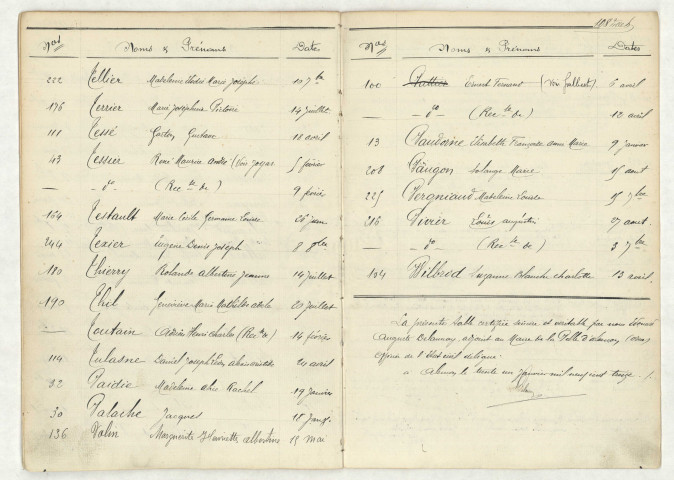 Nos Noms & Prénoms Dates
222 Tellier Madeleine Marie Joseph 10 7bre
176 Terrier Marie Joséphine Victoire 14 juillet
111 Tessé Gaston Gustave 18 avril
43 Tessier René Maurice André (Voir Joyau 5 février
— do — (Rec te de) 9 février
164 Testault Marie Cécile Germaine Louise 26 juin
244 Texier Eugène Denis Joseph 8 8bre
180 Thierry Rolande Albertine Jeanne 14 juillet
190 Thil Geneviève Marie Mathilde 20 juillet
— Toutain Adrien Henri Charles (Rec te de) 14 février
114 Tulasne Daniel Joseph 20 avril
32 Madeleine Rachel 19 janvier
30 Jacques 18 janv.
136 Marguerite Henriette Albertine 15 mai
Nos Noms & Prénoms Dates
100 Ernest Fernand (Voir Jalbert). 6 avril
— do — (Rec te de) 12 avril
13 Vaudorine Elisabeth Françoise Anne Marie 9 janvier
208 Vaugon Solange Marie 15 aout
225 Vergniaud Madeleine Louise 15 7bre
216 Vivier Louis Augustin 27 aout.
— do — (Rec te de) 3 7bre
104 Wilbrod Suzanne Blanche Charlotte 13 avril.
La présente Table certifiée sincère et véritable par nous
Auguste Delaunay, adjoint au Maire de la Ville d'
officier de l'État civil
à le trente un janvier mil neuf cent